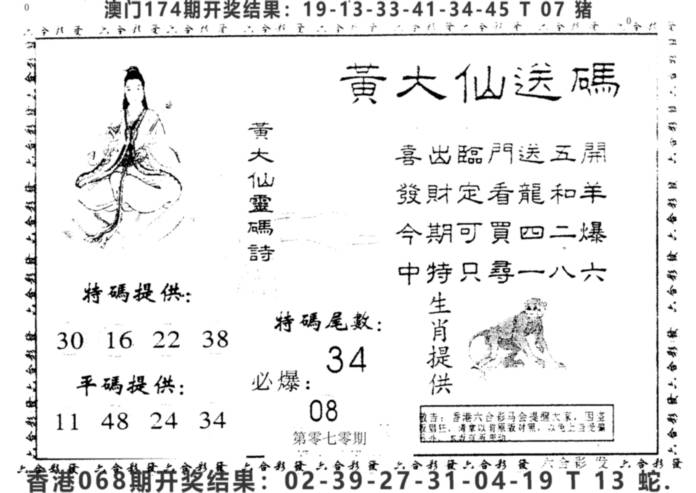 澳门174期开奖结果：19-13-33-41-34-45 T 07 猪
黃大仙送碼
黃大仙靈碼詩
喜出臨門送五開
發財定看龍和羊
今期可買四二爆
中特只尋一八六
特碼提供：
30 16 22 38
平碼提供：
11 48 24 34
特碼尾數：
34
必爆：
08
第零七零期
生肖提供
敬告：香港六合彩马会提醒大家，因盗
香港068期开奖结果：02-39-27-31-04-19 T 13 蛇.